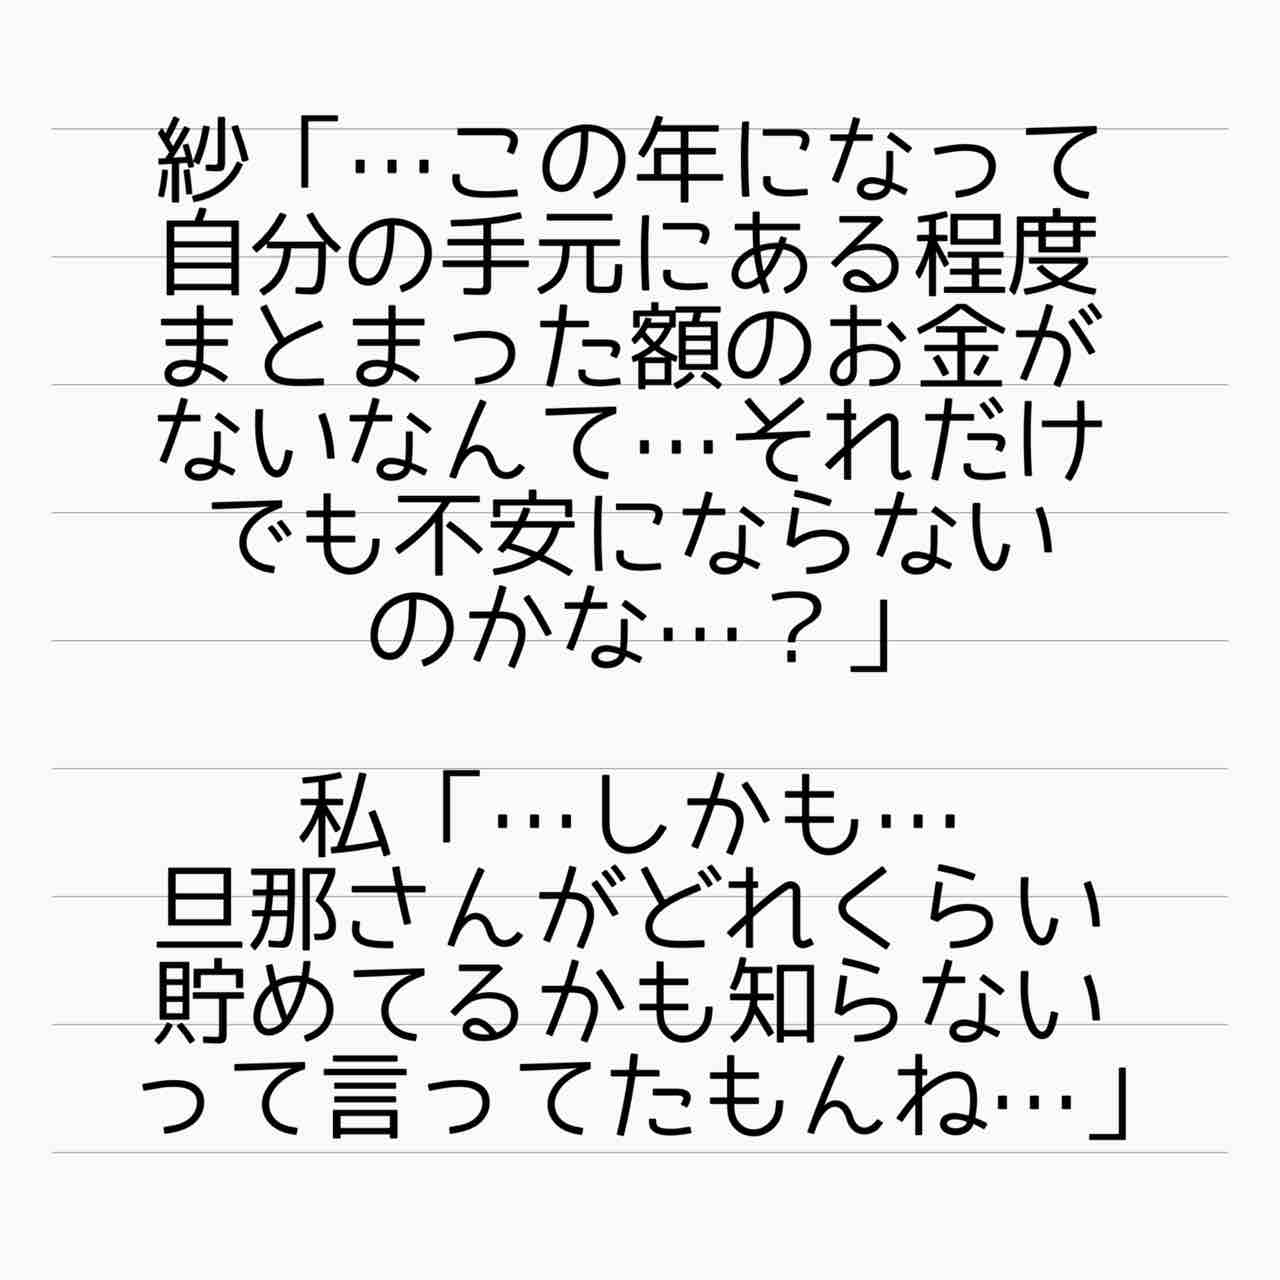 紗「…この年になって
自分の手元にある程度
まとまった額のお金が
ないなんて…それだけ
でも不安にならない
のかな…？」
私「…しかも…
旦那さんがどれくらい
貯めてるかも知らない
って言ってたもんね…」